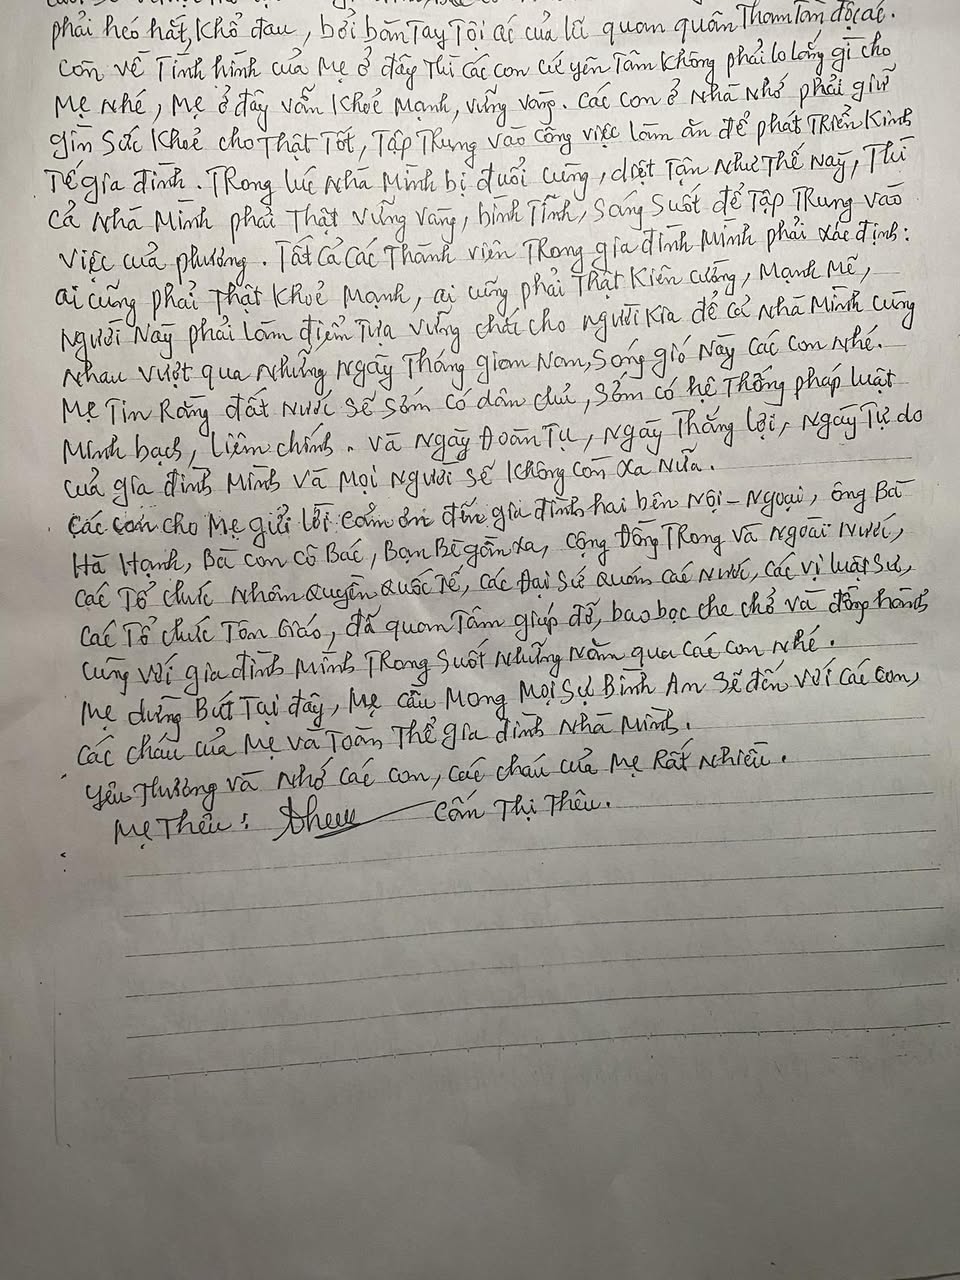 phải héo hắt, khổ đau, bởi bàn Tay Tội ác của lũ quan quân Tham Tàn độc ác.
Còn về Tình hình của Mẹ ở đây Thì các con cứ yên Tâm không phải lo lắng gì cho
Mẹ nhé, Mẹ ở đây vẫn khoẻ Mạnh, vững vàng. Các con ở Nhà Nhớ phải giữ
gìn Sức khoẻ cho Thật Tốt, Tập Trung vào công việc làm ăn để phát Triển Kinh
Tế gia đình. Trong lúc Nhà Mình bị đuổi cùng, diệt Tận Như Thế Này, Thì
cả Nhà Mình phải Thật vững vàng, bình Tĩnh, Sáng Suốt để Tập Trung vào
việc của phương. Tất cả các Thành viên Trong gia đình Mình phải xác định:
ai cũng phải Thật Khoẻ Mạnh, ai cũng phải Thật Kiên cường, Mạnh Mẽ,
Người Này phải làm điểm Tựa vững chãi cho người kia để cả Nhà Mình cùng
Nhau vượt qua Những Ngày Tháng gian Nan, Sóng gió Này các con Nhé.
Mẹ Tin Rằng đất Nước Sẽ Sớm có dân chủ, Sớm có hệ Thống pháp luật
Minh bạch, liêm chính. Và Ngày Đoàn Tụ, Ngày Thắng lợi, Ngày Tự do
của gia đình Mình và Mọi Người Sẽ không còn xa Nữa.
Các con cho Mẹ gửi lời cảm ơn đến gia đình hai bên Nội - Ngoại, ông Bà
Hà Hạnh, Bà con cô Bác, Bạn Bè gần xa, Cộng Đồng Trong Và Ngoài Nước,
các Tổ chức Nhân Quyền Quốc Tế, các Đại Sứ Quán các Nước, các vị luật Sư,
các Tổ chức Tôn Giáo, đã quan Tâm giúp đỡ, bao bọc che chở và đồng hành
cùng với gia đình Mình Trong Suốt Những Năm qua các con nhé.
Mẹ dừng Bút Tại đây, Mẹ cầu Mong Mọi Sự Bình An Sẽ đến với các con,
các cháu của Mẹ và Toàn Thể gia đình Nhà Mình.
Yêu Thương và Nhớ các con, các cháu của Mẹ Rất Nhiều.
Mẹ Thêu: Thêu Cấn Thị Thêu.